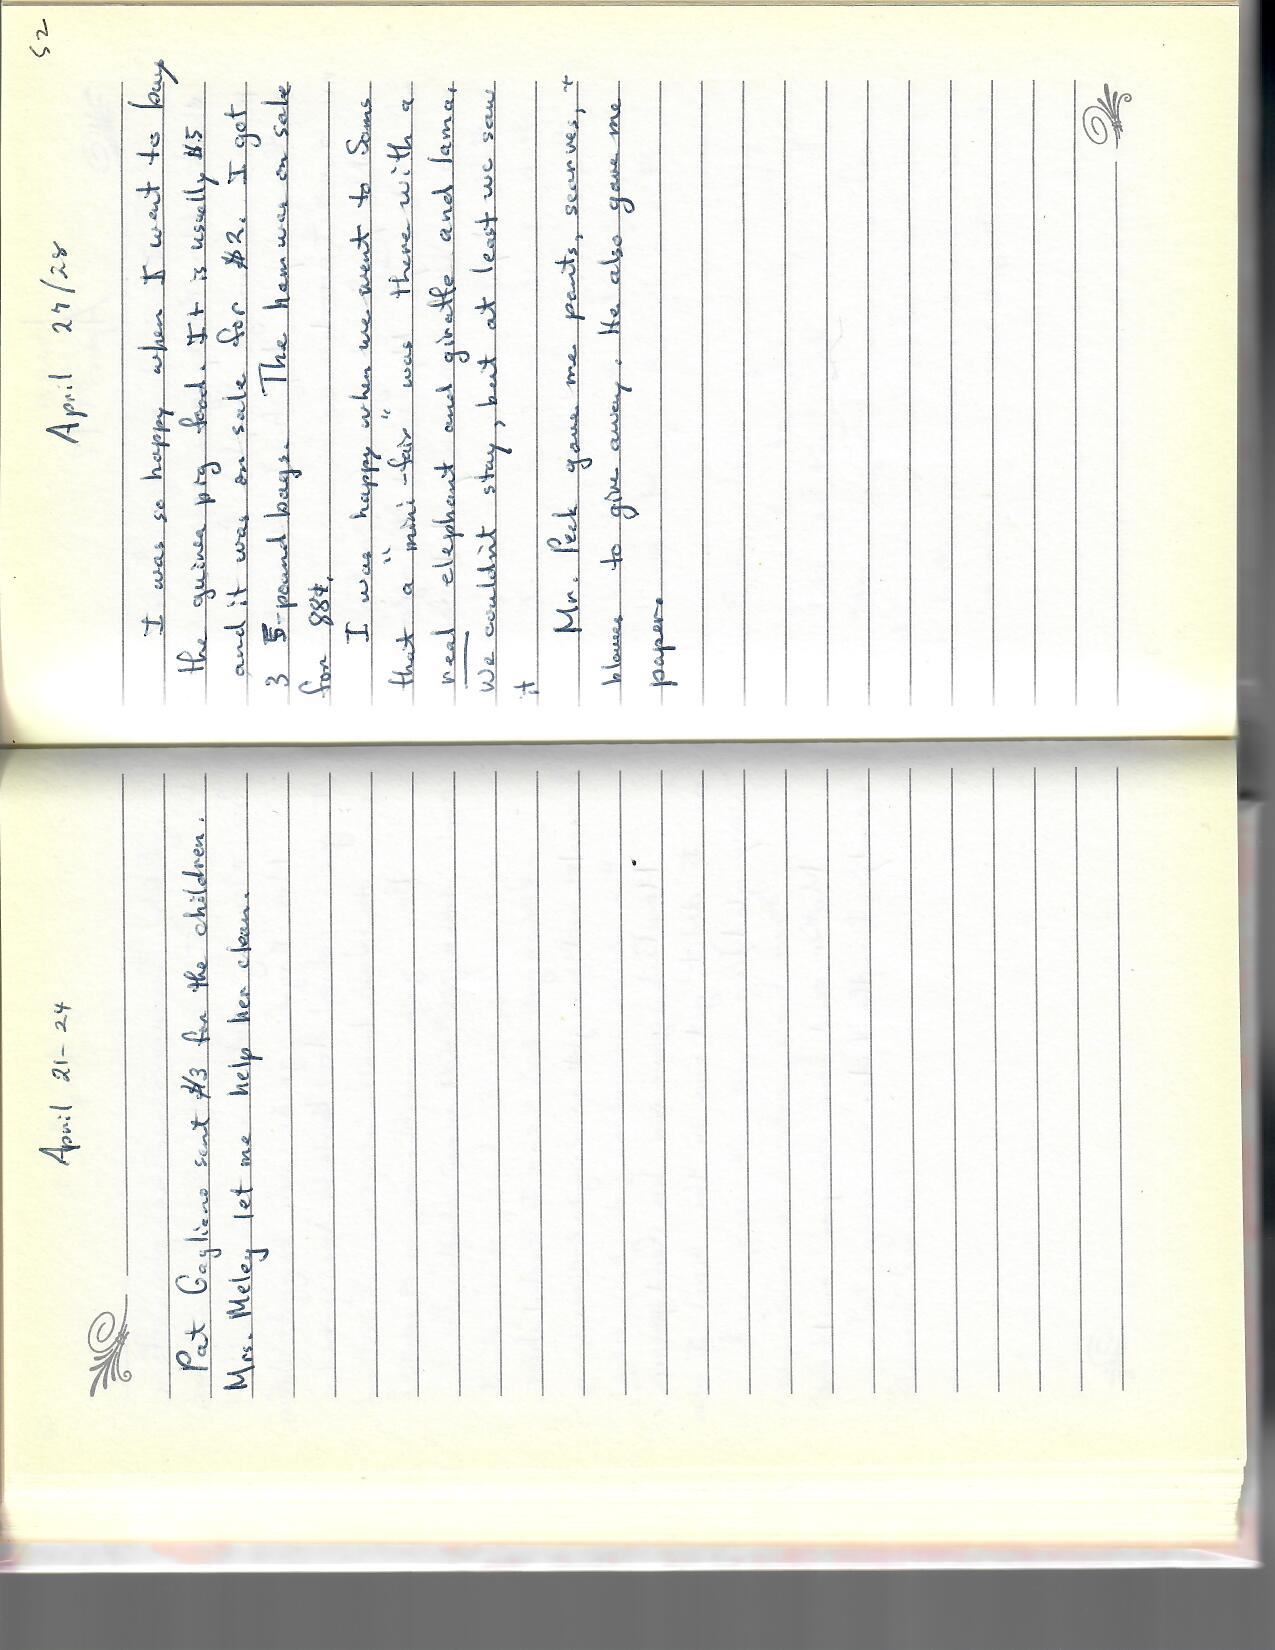 April 21-24
Pat Gagliano sent $3 for the children.
Mrs. Meley let me help her clean.
52
April 24/28
I was so happy when I went to buy
the guinea pig food. It is usually $5
and it was on sale for $2. I got
3 5-pound bags. The ham was on sale
for 88¢.
I was happy when we went to Sams
that a "mini-fair" was there with a
real elephant and giraffe and lama.
We couldn't stay, but at least we saw
it
Mr. Peck gave me pants, scarves, +
blouses to give away. He also gave me
paper.